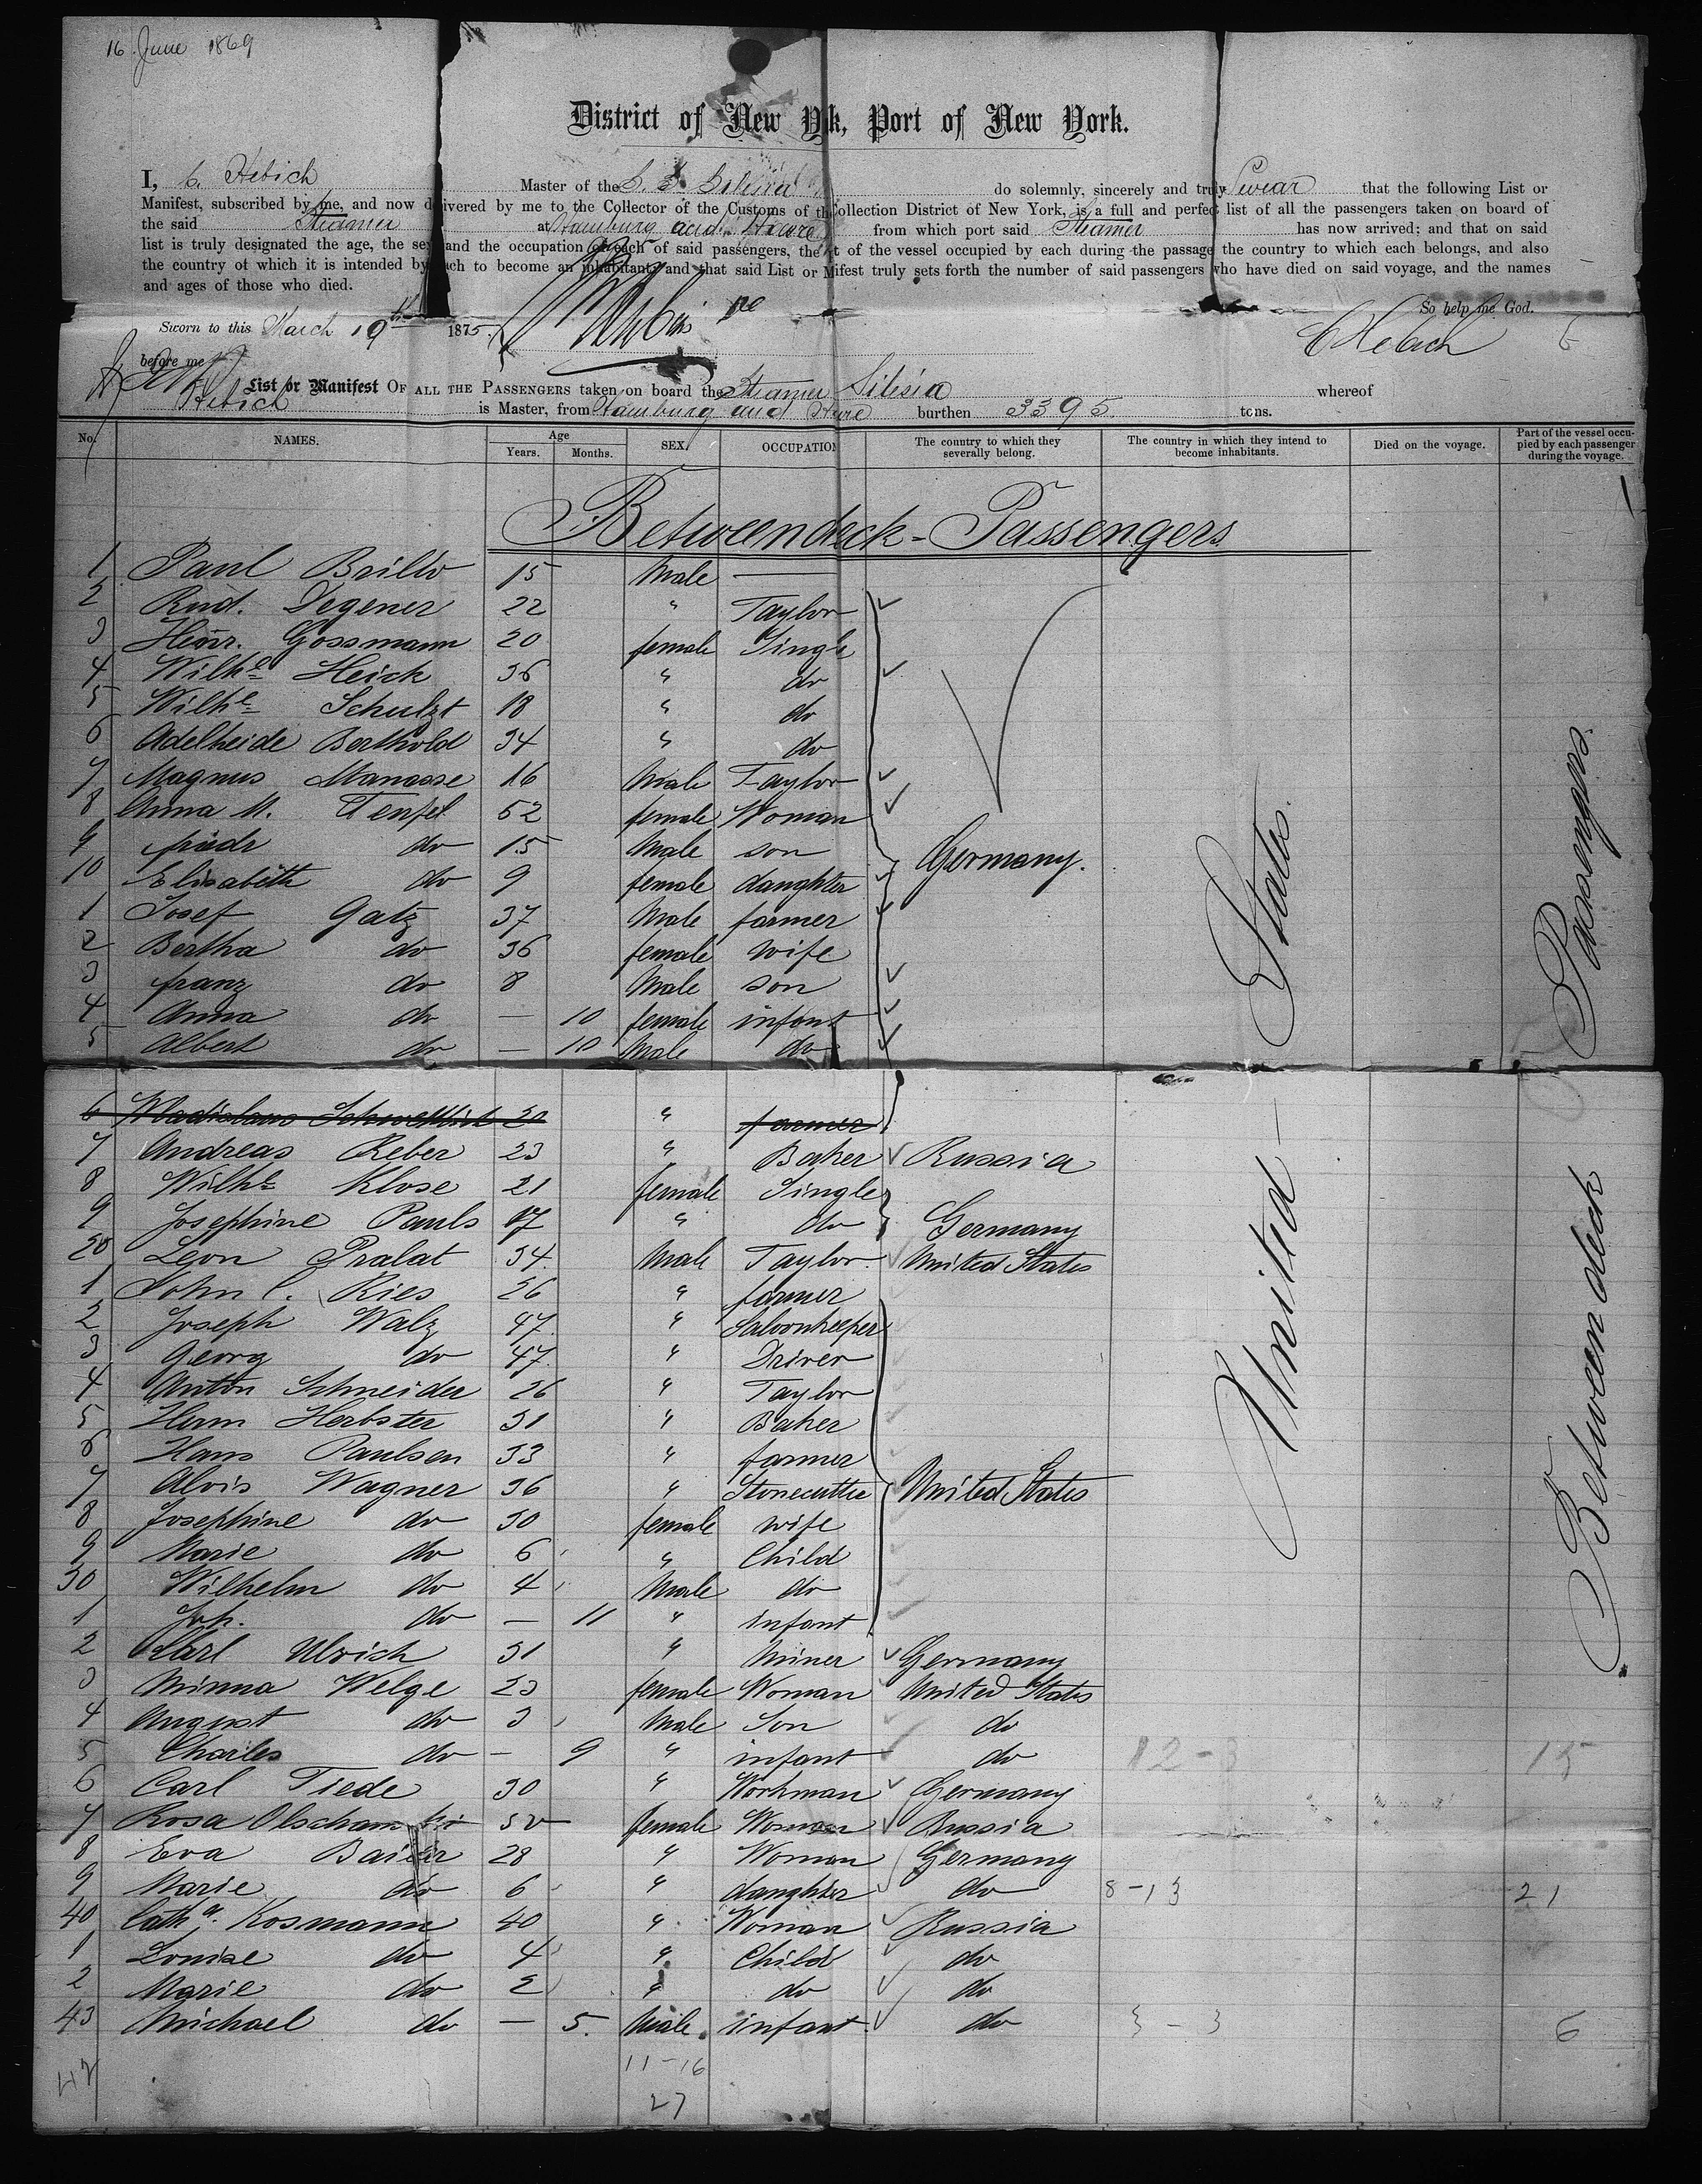 16. June 1869
District of New Yk, Port of New York.
I, C. Hebich Master of the S. S. Silesia do solemnly, sincerely and truly Swear that the following List or
Manifest, subscribed by me, and now delivered by me to the Collector of the Customs of the Collection District of New York, is a full and perfect list of all the passengers taken on board of
the said Steamer at Hamburg and Havre from which port said Steamer has now arrived; and that on said
list is truly designated the age, the sex and the occupation of each of said passengers, the part of the vessel occupied by each during the passage the country to which each belongs, and also
the country of which it is intended by each to become an inhabitant; and that said List or Mifest truly sets forth the number of said passengers who have died on said voyage, and the names
and ages of those who died.
So help me God.
Sworn to this March 19th 1875.
C Hebich
before me
List or Manifest OF ALL THE PASSENGERS taken on board the Steamer Silesia whereof
Hebich is Master, from Hamburg and Havre burthen 3395 tons.
No. NAMES. Age Years. Months. SEX. OCCUPATION The country to which they severally belong. The country in which they intend to become inhabitants. Died on the voyage. Part of the vessel occupied by each passenger during the voyage.
Betweendeck-Passengers
1 Paul Brillo 15 Male —
2 Rud. Degener 22 " Taylor
3 Heinr. Gossmann 20 female Single
4 Wilhe Heick 36 " do
5 Wilhe Schulzt 18 " do
6 Adelheide Berthold 34 " do
7 Magnus Manasse 16 Male Taylor
8 Anna M. Tenfel 52 female Woman
9 friedr do 15 Male son Germany.
10 Elisabeth do 9 female daughter
1 Josef Gatz 37 Male farmer
2 Bertha do 36 female wife
3 franz do 8 Male son
4 Anna do — 10 female infant
5 Albert do — 10 Male do
6 Wladislaus 30 " farmer
7 Andreas Reber 23 " Baker Russia
8 Wilhe Klose 21 female Single
9 Josephine Pauls 17 " do Germany
20 Leon Pralat 34 Male Taylor United States
1 John C. Ries 26 " farmer
2 Joseph Walz 47 " Saloonkeeper
3 Georg do 47 " Driver
4 Anton Schneider 26 " Taylor
5 Herm Herbster 31 " Baker
6 Hans Paulsen 33 " farmer
7 Alois Wagner 36 " Stonecutter United States
8 Josephine do 30 female wife
9 Marie do 6 " Child
30 Wilhelm do 4 Male do
1 Joh. do — 11 " infant
2 Karl Ulrich 31 " Miner Germany
3 Minna Welge 23 female Woman United States
4 August do 3 Male Son do
5 Charles do — 9 " infant do 12-3 15
6 Carl Tiede 30 " Workman Germany
7 Rosa Olschamski 50 female Woman Russia
8 Eva Baier 28 " Woman Germany
9 Marie do 6 " daughter do 8-13 21
40 Catha. Kosmann 40 " Woman Russia
1 Louise do 4 " Child do
2 Marie do 2 " do do
43 Michael do — 5. Male infant do 3-3 6
42 11-16
27
United States
Between deck Passengers.